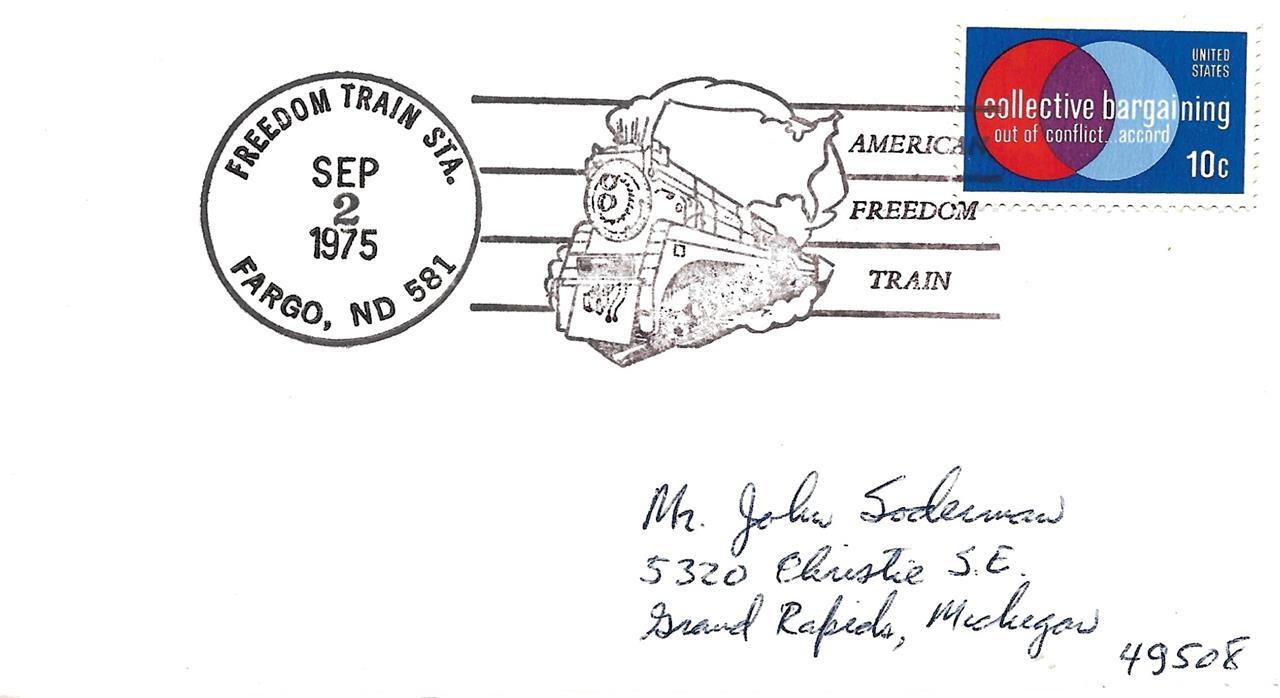 FREEDOM TRAIN STA.
SEP
2
1975
FARGO, ND 581
AMERICAN
FREEDOM
TRAIN
UNITED
STATES
collective bargaining
out of conflict...accord
10c
Mr. John Soderman
5320 Christie S.E.
Grand Rapids, Michigan
49508